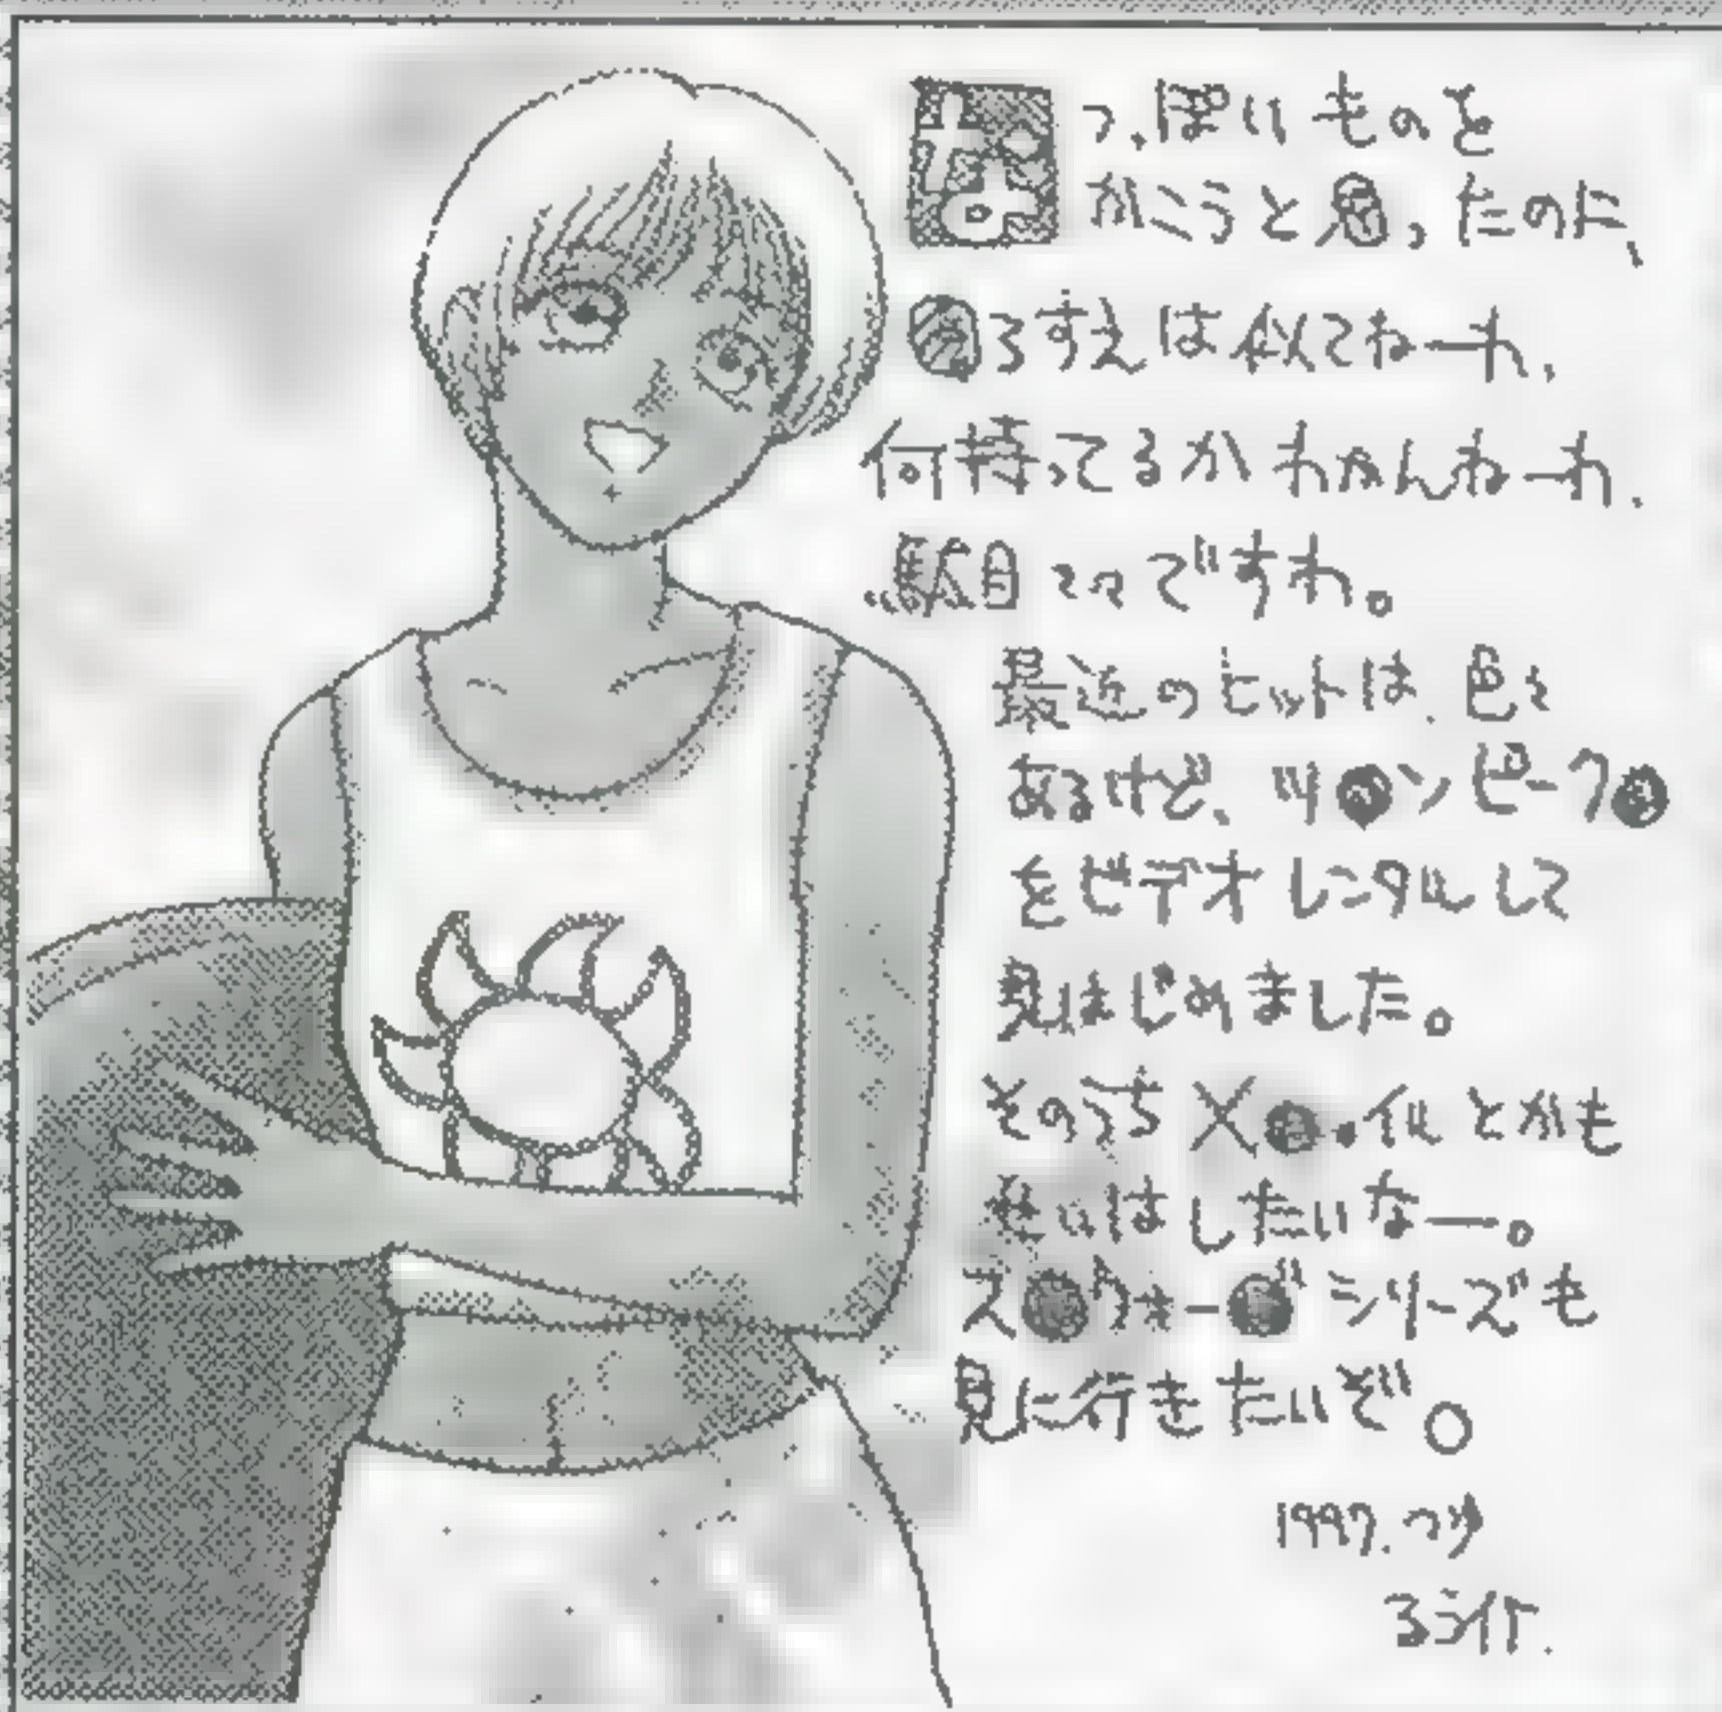 夏っぽいものを
かこうと思ったのに、
ろすえは似てねーわ、
何持ってるかわかんねーわ、
駄目々々でですわ。
最近のヒットは、色々
あるけど、ツ●ンピーク●
をビデオレンタルして
見はじめました。
そのうちX●.イルとかも
見はしたいなー。
ス●ウォー●ズシリーズも
見に行きたいぞ。
1997.つゆ